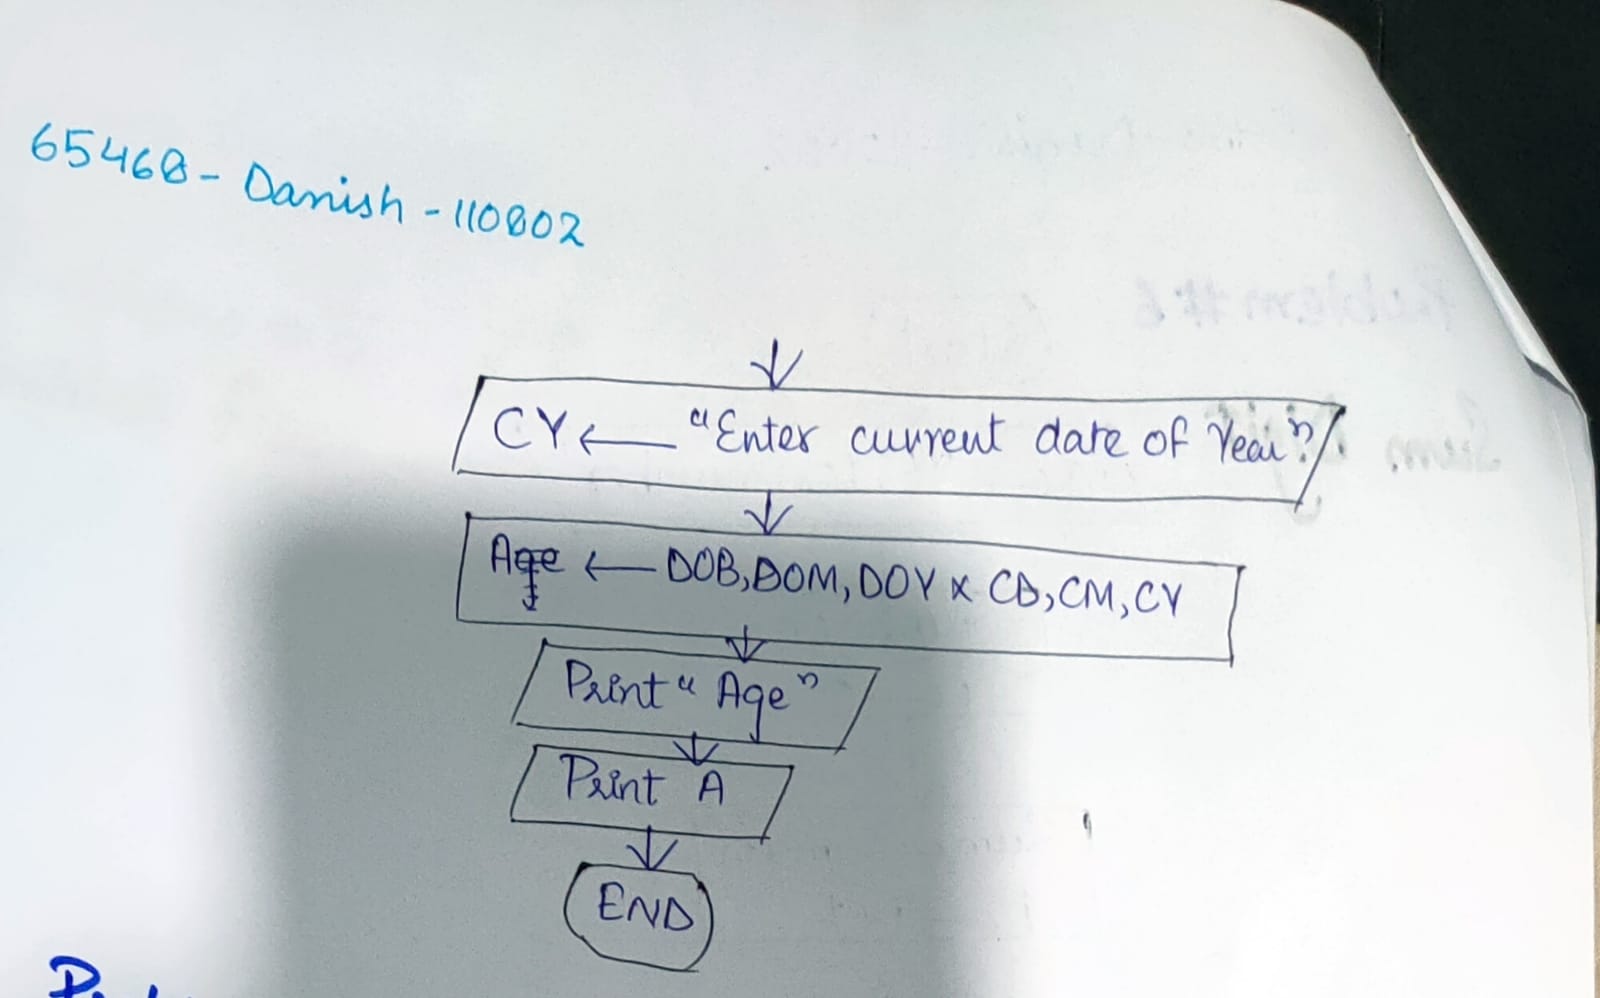 65468 - Danish - 110802
CY ← "Enter current date of Year"
Age ← DOB, DOM, DOY x CD, CM, CY
Print "Age"
Print A
END